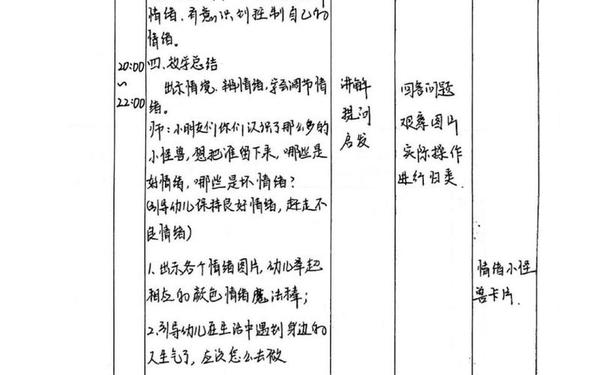 情绪,有意识到控制自己的
情绪。
20:00
~
22:00
四、教学总结
出示情境,辨情绪,学会调节情
绪。
师:小朋友们你们认识了那么多的
小怪兽,想把谁留下来,哪些是
好情绪,哪些是坏情绪?
(引导幼儿保持良好情绪,赶走不
良情绪)
1.出示各个情绪图片,幼儿举起
相应的颜色情绪魔法棒;
2.引导幼儿在生活中遇到身边的
人生气了,应该怎么去做
讲解
提问
启发
回答问题
观察图片
实际操作
进行归类
情绪小怪
兽卡片.